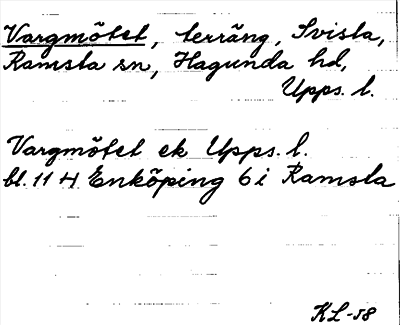 Vargmötet, terräng, Svista,
Ramsta sn, Hagunda hd,
Upps. l.
Vargmötet ek Upps. l.
bl. 11 H Enköping 6 i Ramsta
KL-58